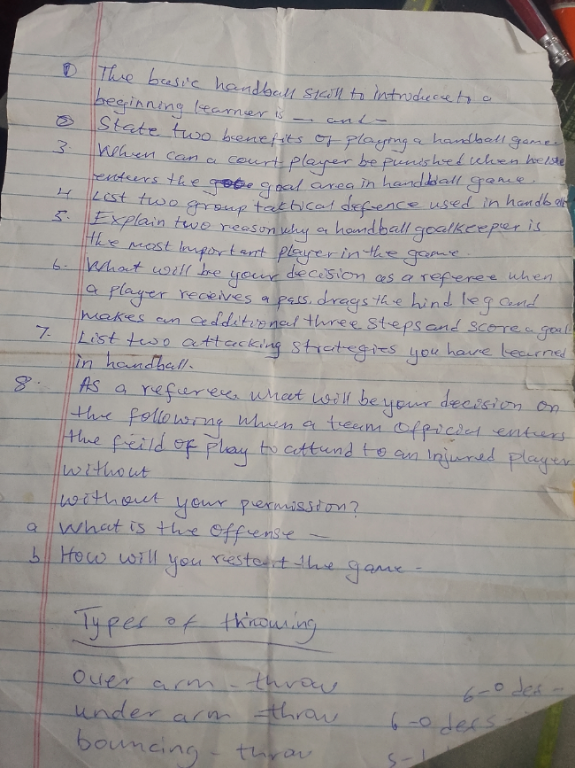 ① The basic handball skill to introduce to a
beginning learner is — and —
② State two benefits of playing a handball game.
3. When can a court player be punished when he/she
enters the goal area in handball game.
4 List two group tactical defence used in handball
5. Explain two reason why a handball goalkeeper is
the most important player in the game.
6. What will be your decision as a referee when
a player receives a pass, drags the hind leg and
makes an additional three steps and score a goal
7. List two attacking strategies you have learned
in handball.
8. As a referee, what will be your decision on
the following when a team official enters
the feild of play to attend to an injured player
without
without your permission?
a What is the offense —
b How will you restart the game -
Types of throwing
over arm - throw
under arm - throw
bouncing - throw
6-0
6-0
5-1